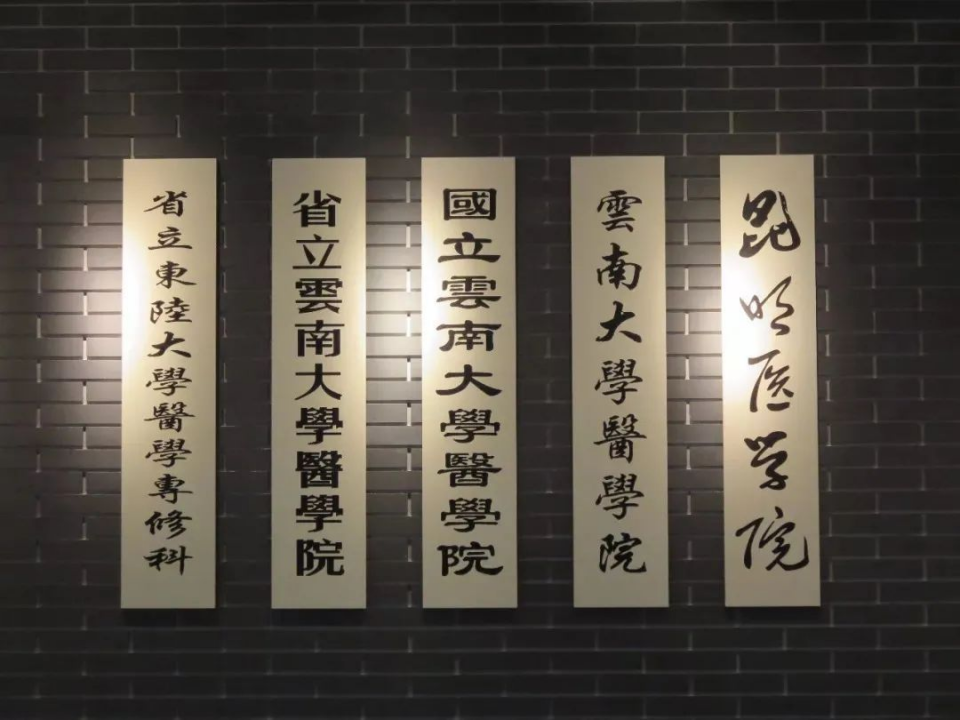 省立東陸大學醫學專修科
省立雲南大學醫學院
國立雲南大學醫學院
雲南大學醫學院
昆明医学院